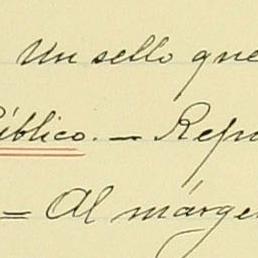 Un sello que
úblico. — Repú
= Al márge